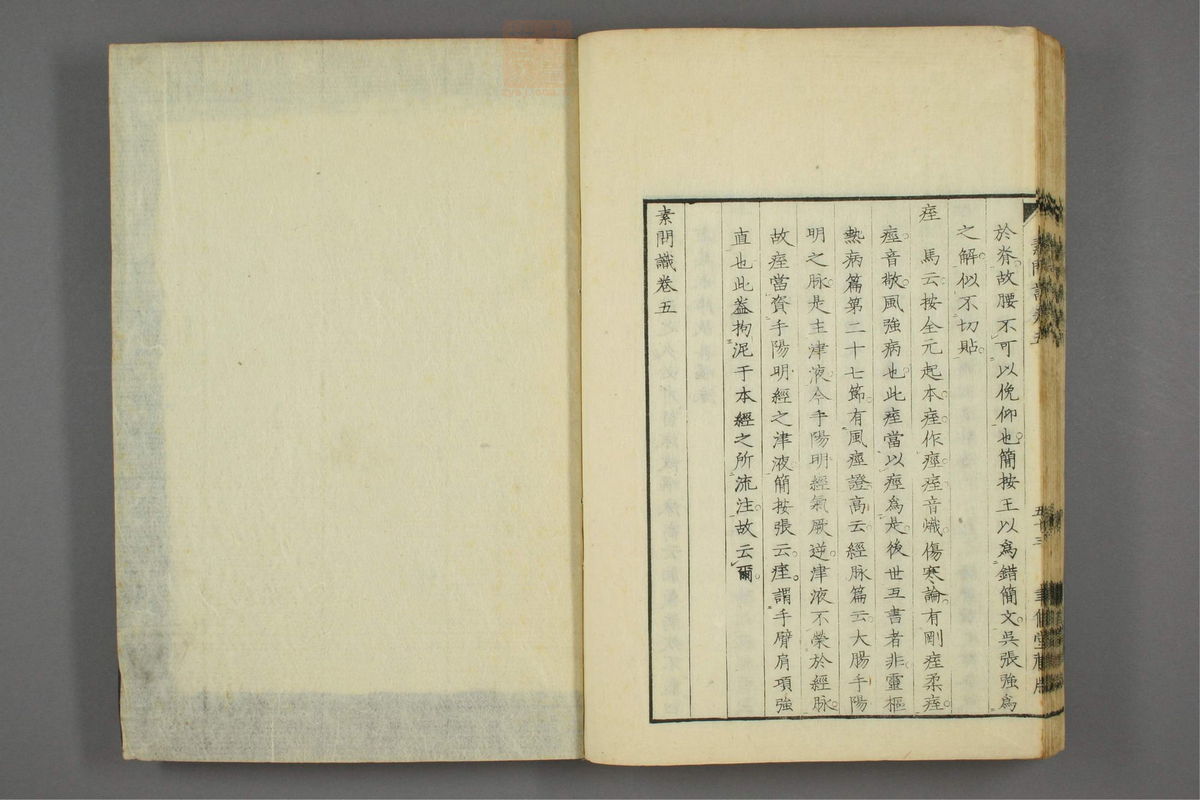 於脊故腰不可以俛仰也簡按王以為錯簡文吳張強為
之解似不切貼
痓
馬云按全元起本痓作痙痓音熾傷寒論有剛痓柔痓
痙音敬風強病也此痓當以痙為是後世互書者非靈樞
熱病篇第二十七節有風痙證高云經脉篇云大腸手陽
明之脉是主津液今手陽明經氣厥逆津液不榮於經脉
故痓當資手陽明經之津液簡按張云痓謂手臂肩項強
直也此蓋拘泥于本經之所流注故云爾
素問識卷五